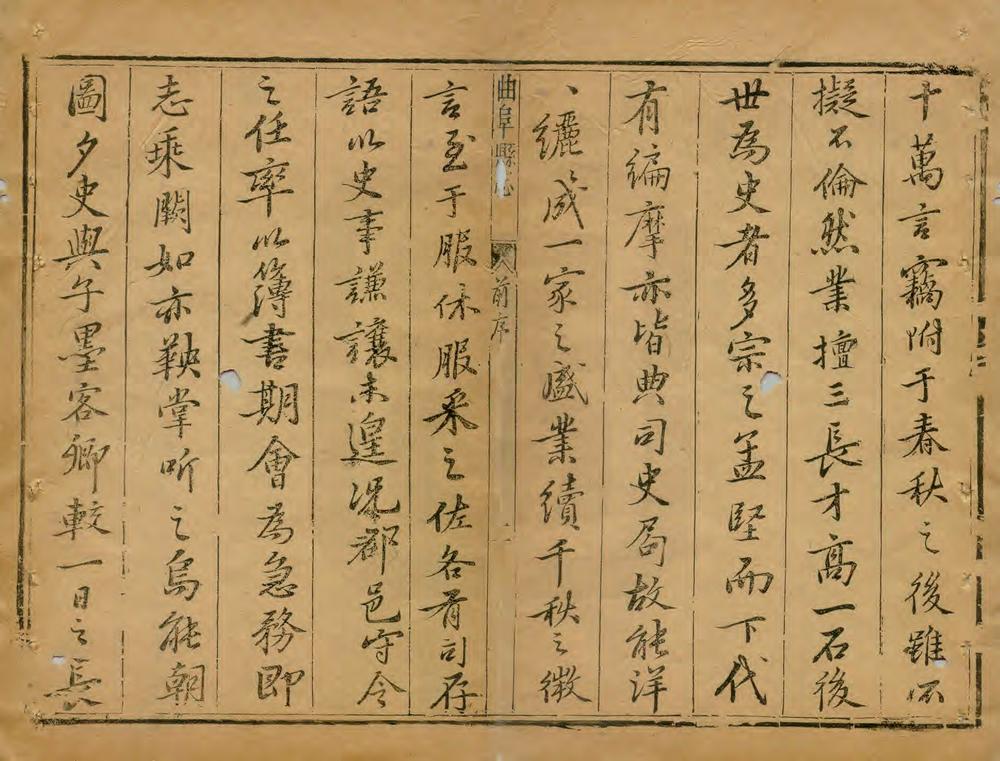 十萬言竊附于春秋之後雖不
擬不倫然業擅三長才高一石後
世為史者多宗之孟堅而下代
有編摩亦皆典司史局故能洋
丶纚纚成一家之盛業續千秋之徽
曲阜縣志
前序
二
言至于服休服采之佐各有司存
語以史事謙讓未遑况郡邑守令
之任率以簿書期會為急務即
志乘闕如亦鞅掌听之烏能朝
圖夕史與子墨客卿較一日之長